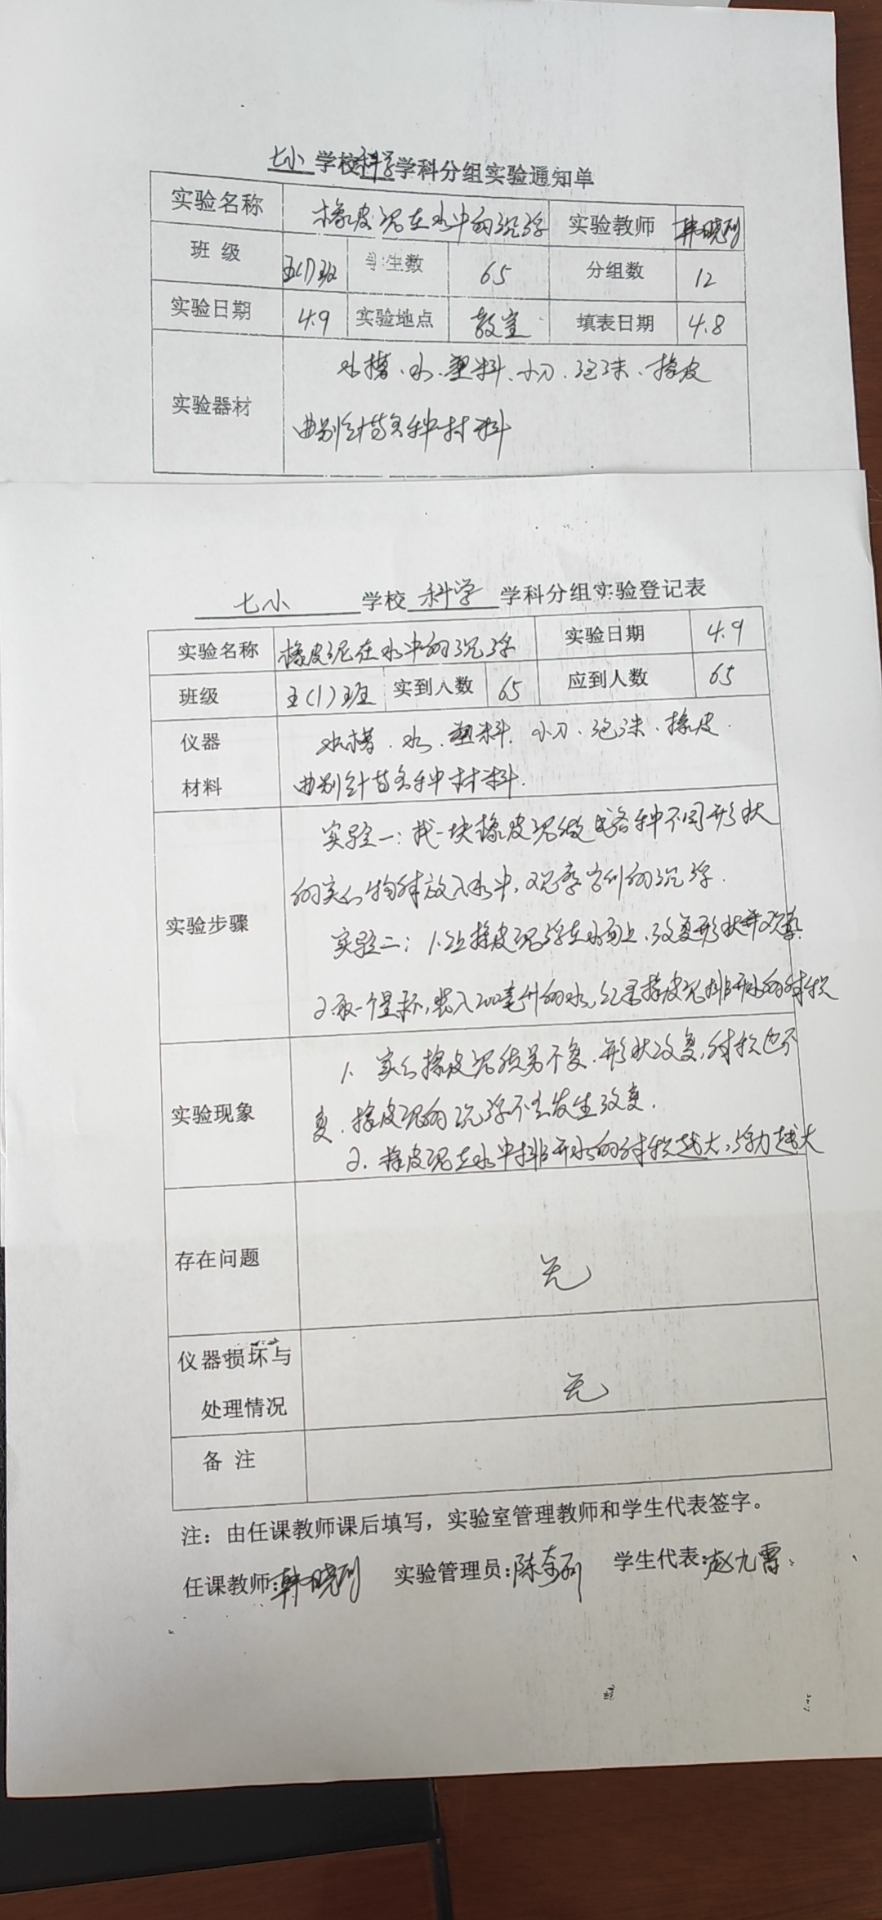 七小 学校 科学 学科分组实验通知单
实验名称 橡皮泥在水中的沉浮 实验教师 韩晓列
班 级 五(1)班 学生数 65 分组数 12
实验日期 4.9 实验地点 教室 填表日期 4.8
实验器材 水槽、水、塑料、小刀、泡沫、橡皮
曲别针等各种材料
七小 学校 科学 学科分组实验登记表
实验名称 橡皮泥在水中的沉浮 实验日期 4.9
班级 五(1)班 实到人数 65 应到人数 65
仪器 水槽、水、塑料、小刀、泡沫、橡皮、
材料 曲别针等各种材料.
实验一:找一块橡皮泥做成各种不同形状
的实心物体放入水中,观察它们的沉浮.
实验步骤
实验二:1.让橡皮泥浮在水面上,改变形状并观察
2.取一个量杯,装入200毫升的水,记录橡皮泥排开水的体积
1、实心橡皮泥质量不变,形状改变,体积也不
实验现象
变,橡皮泥的沉浮不会发生改变.
2、橡皮泥在水中排开水的体积越大,浮力越大
存在问题 无
仪器损坏与
处理情况 无
备 注
注:由任课教师课后填写,实验室管理教师和学生代表签字。
任课教师:韩晓列 实验管理员: 学生代表: